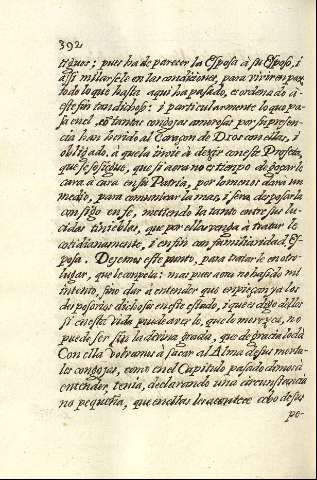 392
tigues; pues ha de parecer la Esposa à su Esposo, i
assi milarsele en las condiciones, para vivir en paz
todo lo que hasta aqui ha pasado, es ordenado à
este fin tan dichoso: i particularmente lo que pa-
sa en el tantas congojas amorosas por su presen-
cia han herido al Coraçon de Dios con ellas, i
obligado, à que la invie à dezir con este Profeta,
que se sosiegue, que si aora no es tiempo de goçarle
cara à cara en su Patria, por lo menos dará un
medio, para comunicarla mas, i será desposarla
consigo en fe, metiendola tanto entre sus lu-
cidas tinieblas, que por ellas venga à tratarle
cotidianamente, i en fin con familiaridad, Es-
posa. Dejemos este punto, para tratarle en otro
lugar, que le conpeta: mas pues aora no ha sido mi
intento, sino dar à entender que enpieçan ya los
desposorios dichosos en este estado, i que es algo dellos
si en esta vida puede aver lo, que lo mereçca, no
puede ser sin la divina gracia, que de
Con ella volvamos à sacar al Alma de sus morta-
les congojas, como en el Capitulo pasado
entender tenia, declarando una circunstancia
no pequeña, que en ellas le acontece de sus
pe-